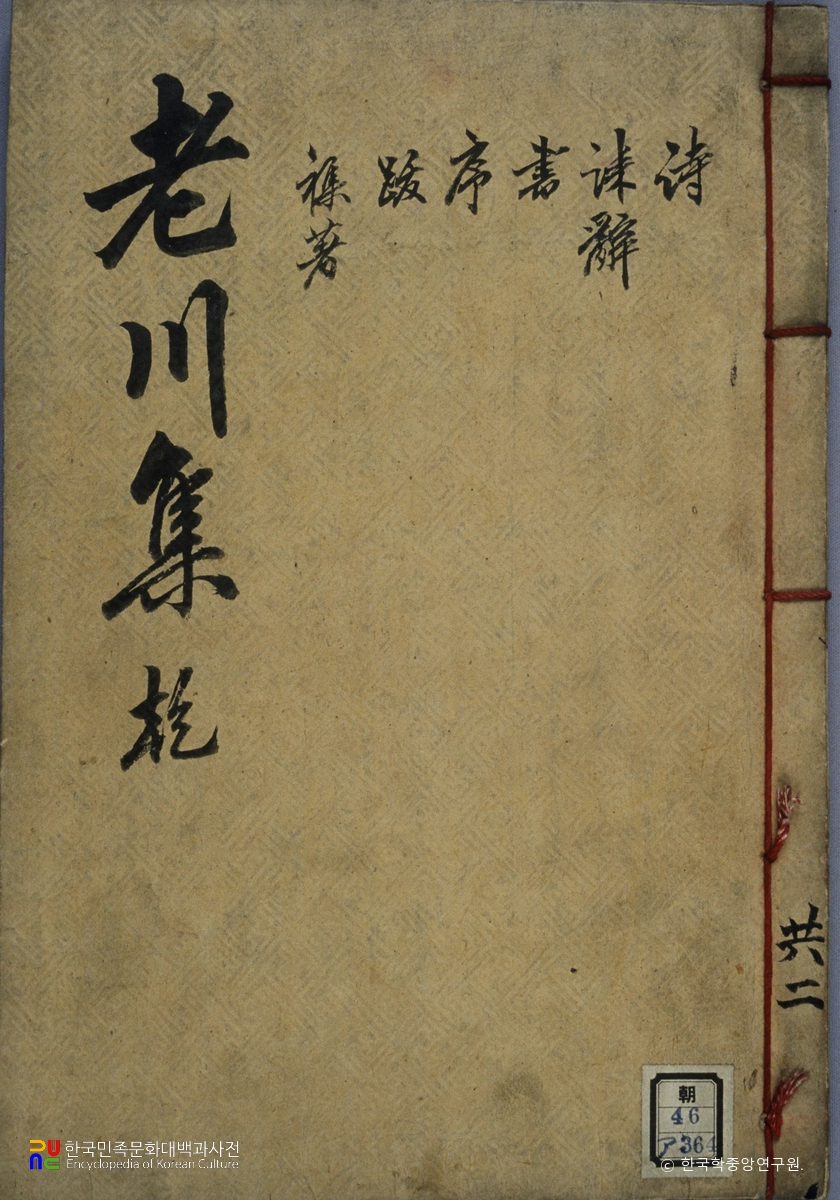 詩
誄辭
書
序
跋
襍著
老川集 乾
共二
朝
46
ア364
한국민족문화대백과사전
Encyclopedia of Korean Culture
© 한국학중앙연구원.